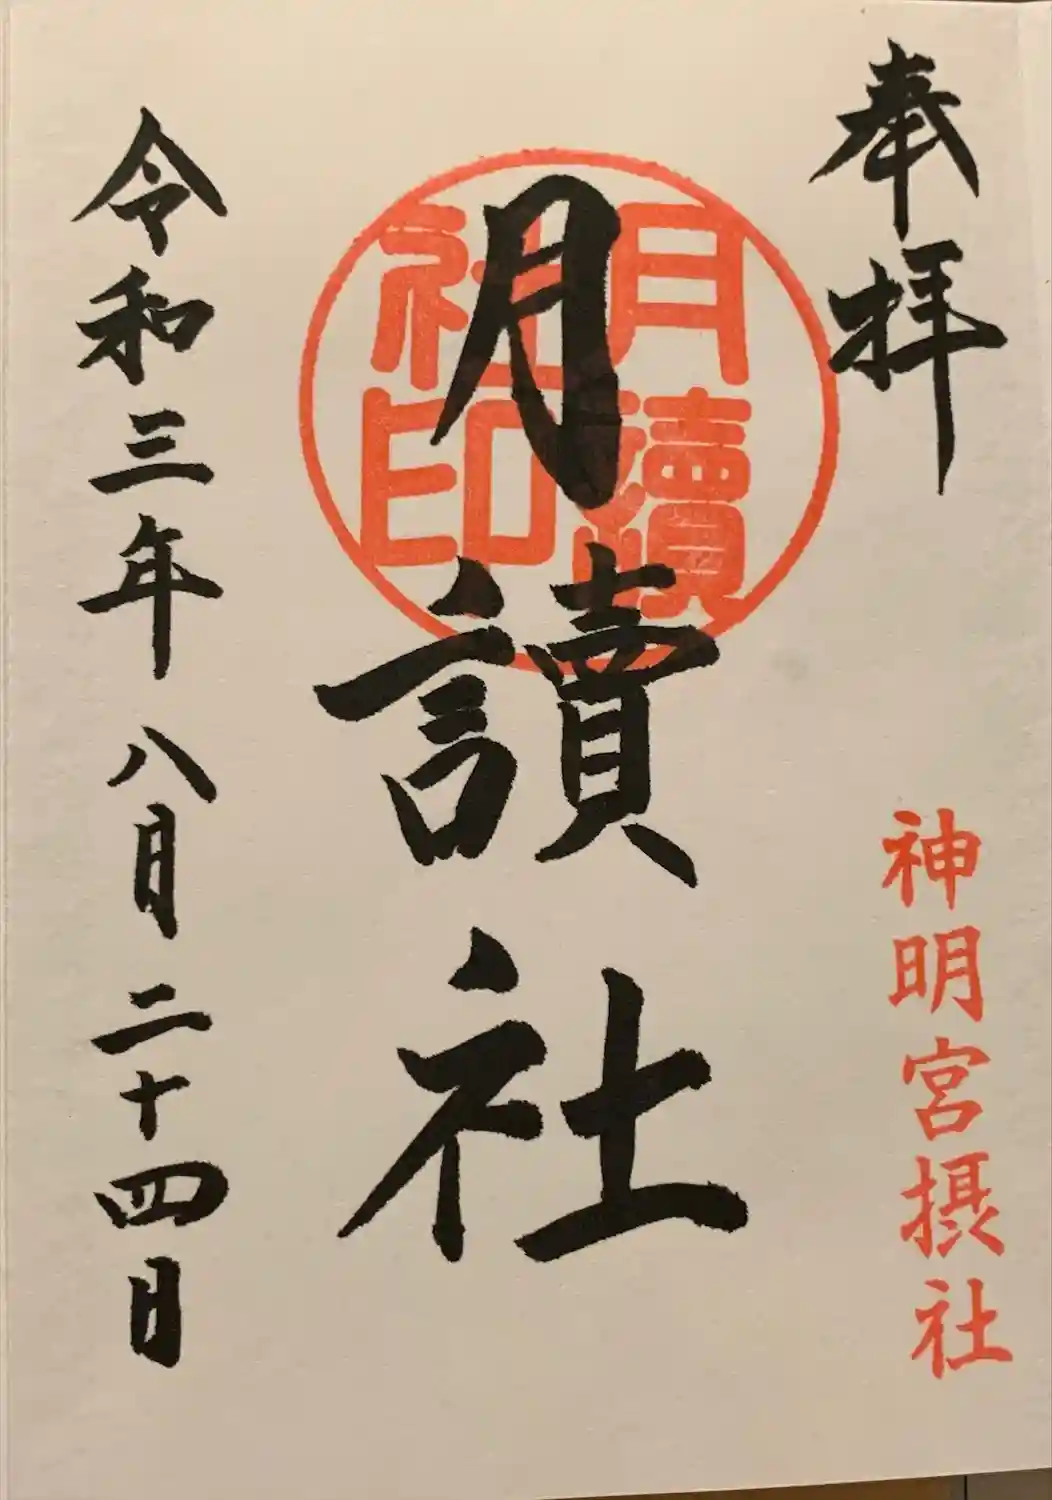 奉拝
神明宮摂社
月讀社
月讀
社印
令和三年八月二十四日